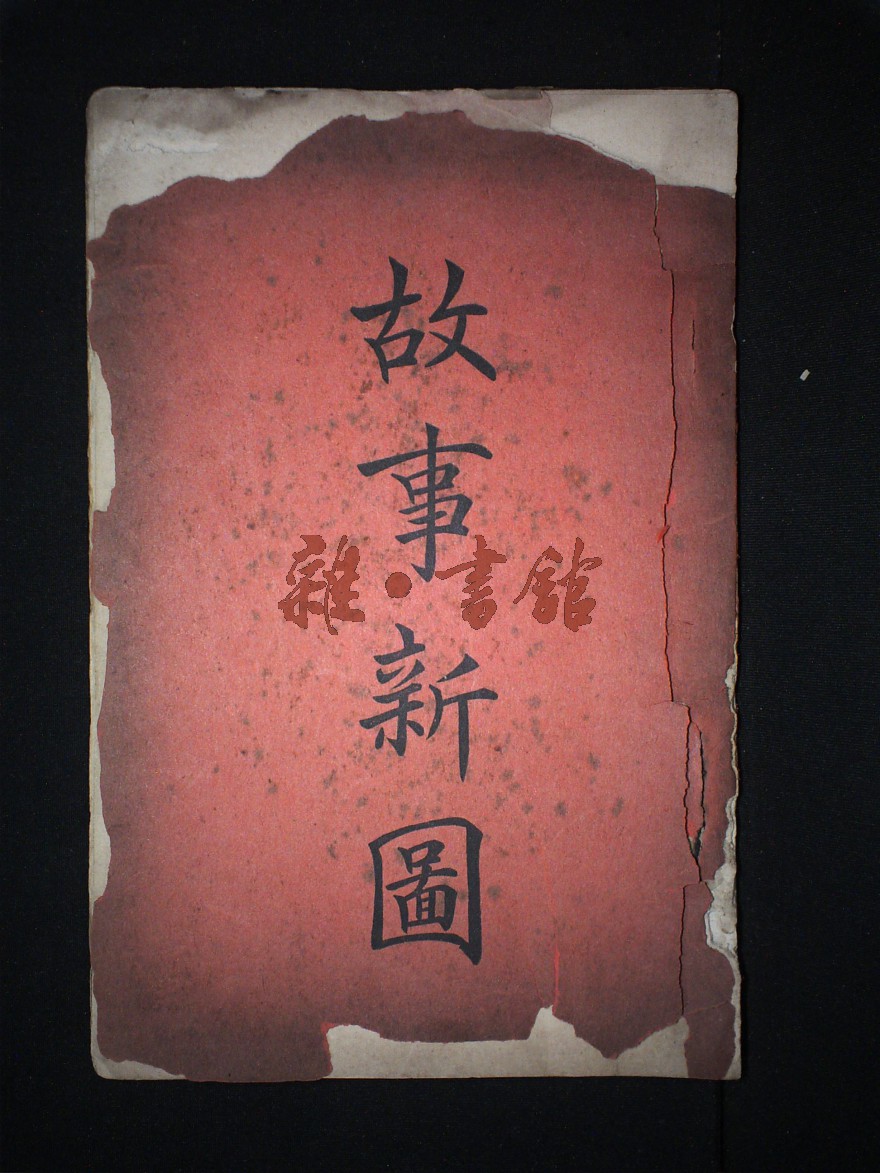 故事新圖
雜·書館